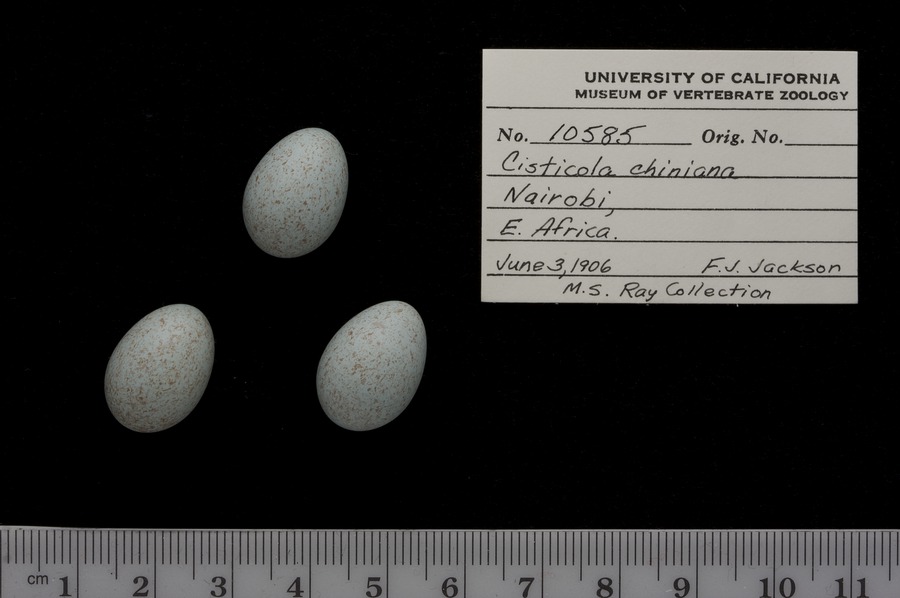 UNIVERSITY OF CALIFORNIA
MUSEUM OF VERTEBRATE ZOOLOGY
No. 10585 Orig. No.
Cisticola chiniana
Nairobi,
E. Africa.
June 3, 1906 F.J. Jackson
M.S. Ray Collection
cm 1 2 3 4 5 6 7 8 9 10 11